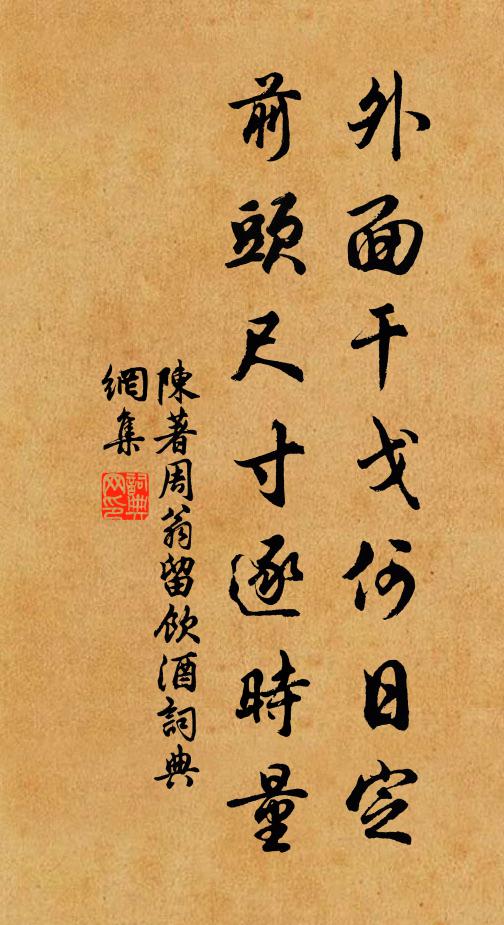 外面干戈何日定
前頭尺寸逐時量
陳著周翁留飲酒詞典
網集
詞典
网印